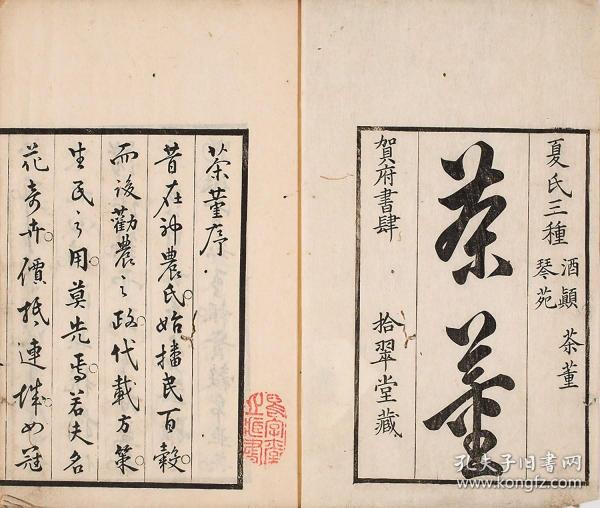 夏氏三種 酒顚 茶董
琴苑
茶董
賀府書肆 拾翠堂藏
茶董序
昔在神農氏始播民百穀
而後勸農之政代載方策
生民之用莫先焉若夫名
花奇卉價抵連城如冠
孔夫子旧书网
www.kongfz.com